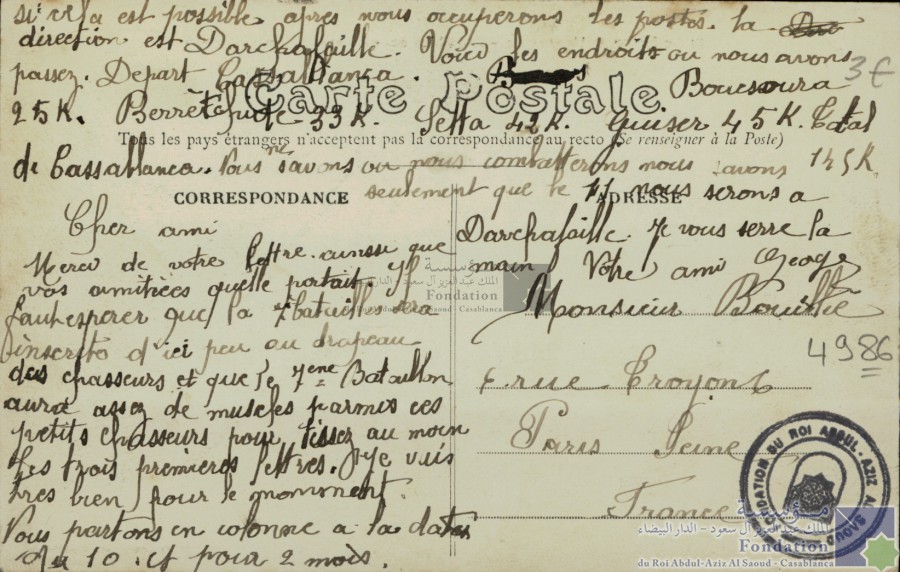 si cela est possible après nous occuperons les postes. la
direction est Darchafaille. Voici les endroits ou nous avons
passez. Depart Cassablanca. Boucsoura
25K. Berrêchite 33K. Setta 42K. Guiser 45K. total
de Cassablanca. 145K
Nous ne savons ou nous combatterons nous savons
seulement que le 11 nous serons a
Darchafaille. Je vous serre la
main Votre ami George
Carte Postale
Tous les pays étrangers n'acceptent pas la correspondance au recto (Se renseigner à la Poste)
CORRESPONDANCE
Cher ami
Merci de votre lettre. ainssi que
vos amitiées quelle portait. Il
faut esperer que la bataille sera
inscrito d'ici peu au drapeau
des chasseurs et que le 7ème Bataillon
aura assez de muscles parmis ces
petits chasseurs pour tissez au moin
les trois premieres lettres. Je vais
tres bien pour le momment.
Nous partons en colonne a la date
du 10 ct pour 2 mois.
ADRESSE
Monsieur
6. rue Troyon 6
Paris Seine
France
3€
4986
مؤسسة
الملك عبد العزيز آل سعود - الدار البيضاء
Fondation
du Roi Abdul-Aziz Al Saoud - Casablanca
FONDATION DU ROI ABDUL-AZIZ AL SAOUD
مؤسسة
الملك عبد العزيز آل سعود - الدار البيضاء
Fondation
du Roi Abdul-Aziz Al Saoud - Casablanca